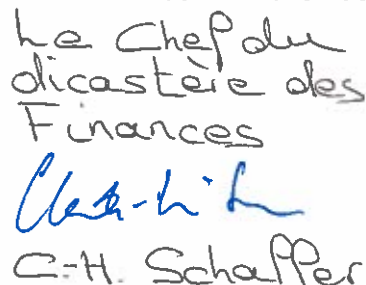 Le Chef du
dicastère des
Finances
C-H. Schaffer